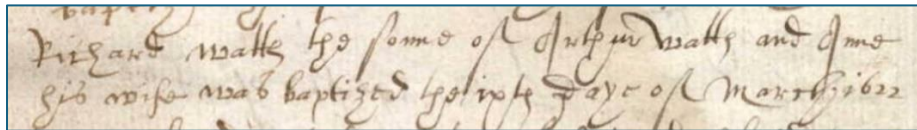 Richard Watts the sonne of Arthur Watts and Anne
his wife was baptized the ixth daye of March 1622